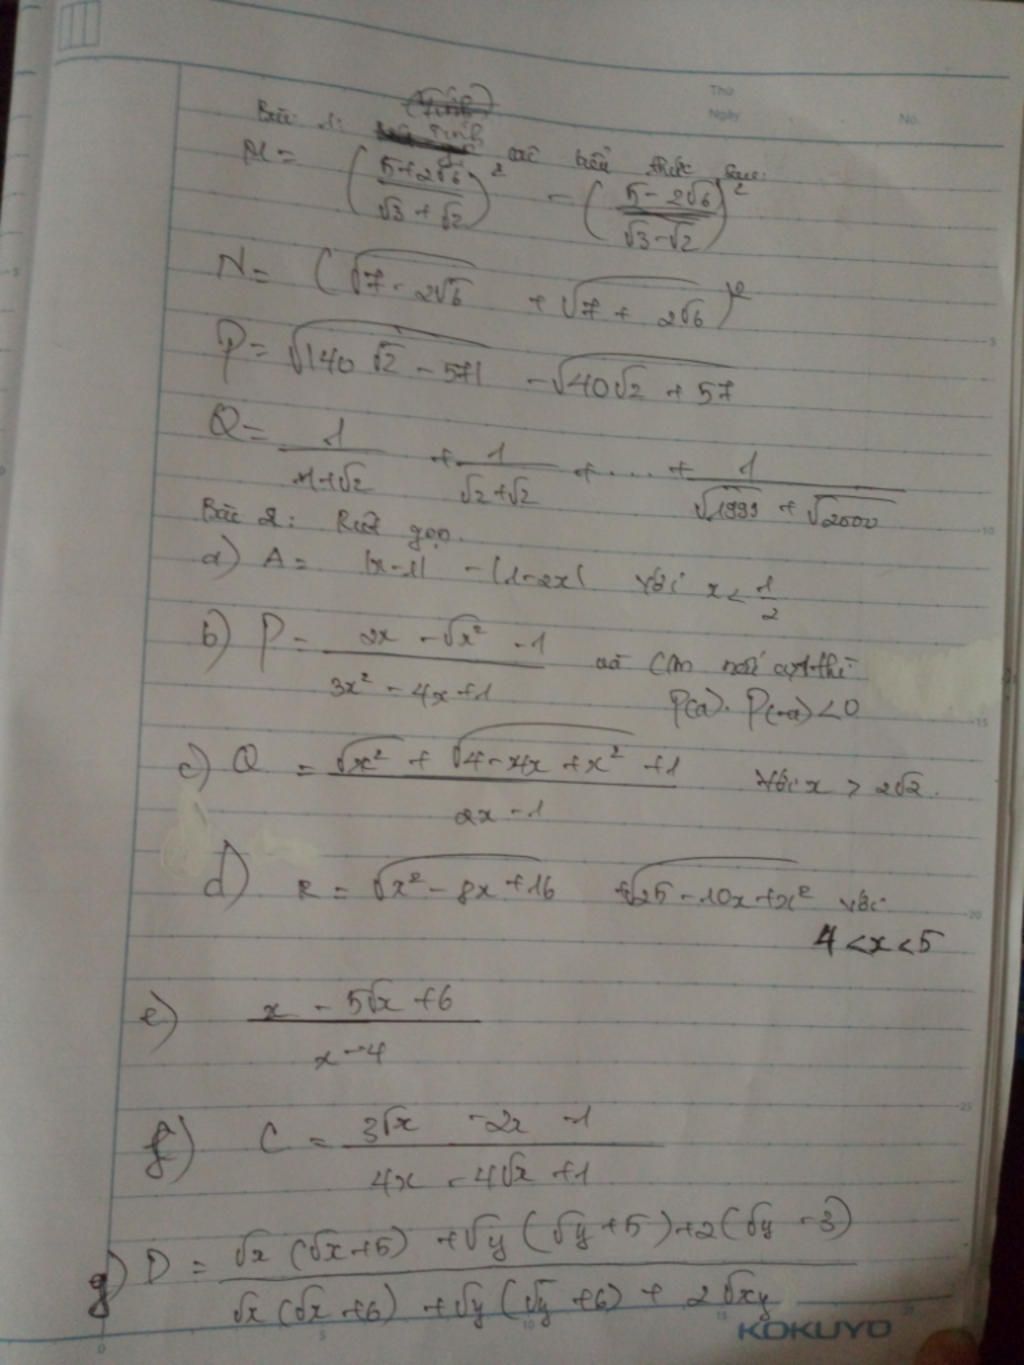 Thứ
Ngày
No.
Bài 1: Tính các biểu thức sau:
M = ((5+2√6)/(√3+√2))² - ((5-2√6)/(√3-√2))²
N = (√(7-2√6) + √(7+2√6))²
P = √(140√2 - 571) - √(40√2 + 57)
Q = 1/(1+√2) + 1/(√2+√2) + ... + 1/(√1999 + √2000)
Bài 2: Rút gọn.
a) A = |x-1| - |1-2x| với x < 1/2
b) P = (2x - √x² - 1)/(3x² - 4x + 1) thì
P(a). P(-a) < 0
c) Q = (√x² + √(4-4x+x²) + 1)/(2x-1) với x > 2√2.
d) R = √(x²-8x+16) + √(25-10x+x²) với
4 < x < 5
e) (x - 5√x + 6)/(x-4)
f) C = (3√x - 2x - 1)/(4x - 4√x + 1)
g) D = (√x(√x+5) + √y(√y+5) + 2(√y-3))/(√x(√x+6) + √y(√y+6) + 2√xy)
KOKUYO